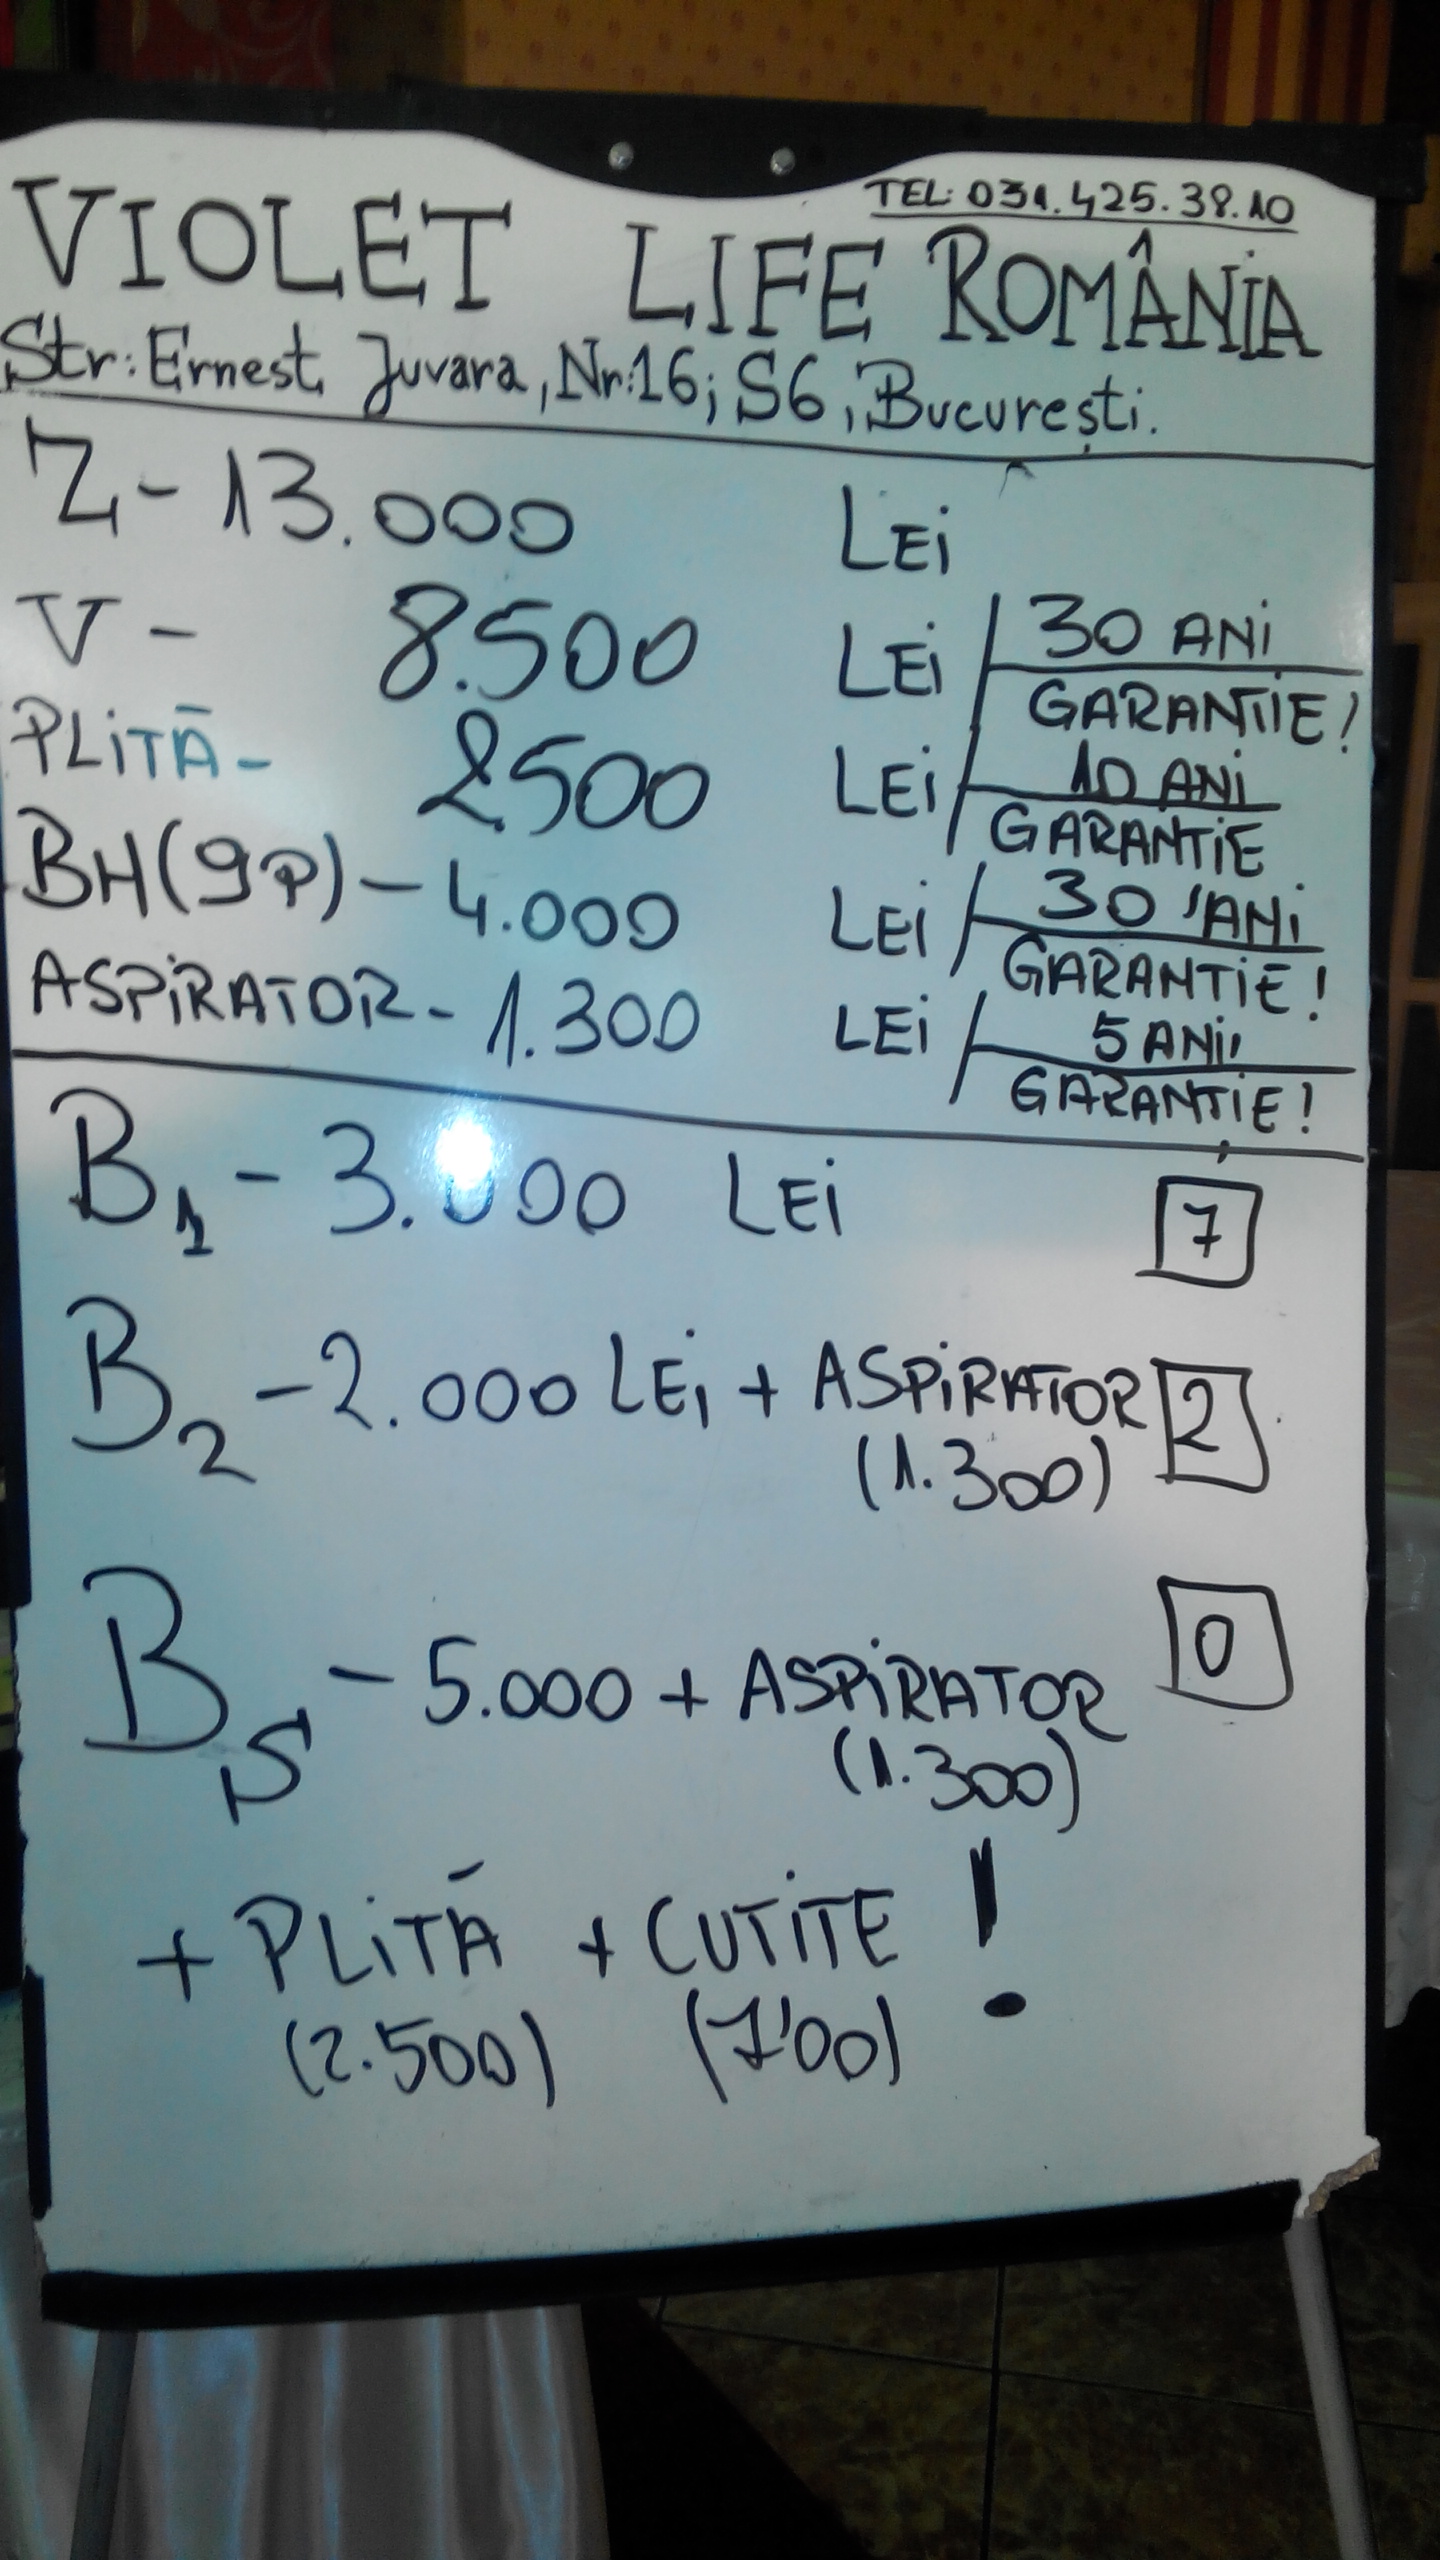 TEL: 031.425.38.10
VIOLET LIFE ROMÂNIA
Str: Ernest Juvara, Nr:16; S6, București.
Z - 13.000 LEi
V - 8.500 LEi / 30 ANi GARANTIE!
PLiTĂ - 2500 LEi / 10 ANi GARANTiE
BH (9P) - 4.000 LEi / 30 ANi GARANTiE!
ASPiRATOR - 1.300 LEi / 5 ANi GARANTiE!
B1 - 3.000 LEi 7
B2 - 2.000 LEi + ASPiRATOR 2
(1.300)
BS - 5.000 + ASPiRATOR 0
(1.300)
+ PLiTĂ + CUTiTE !
(2.500) (700)